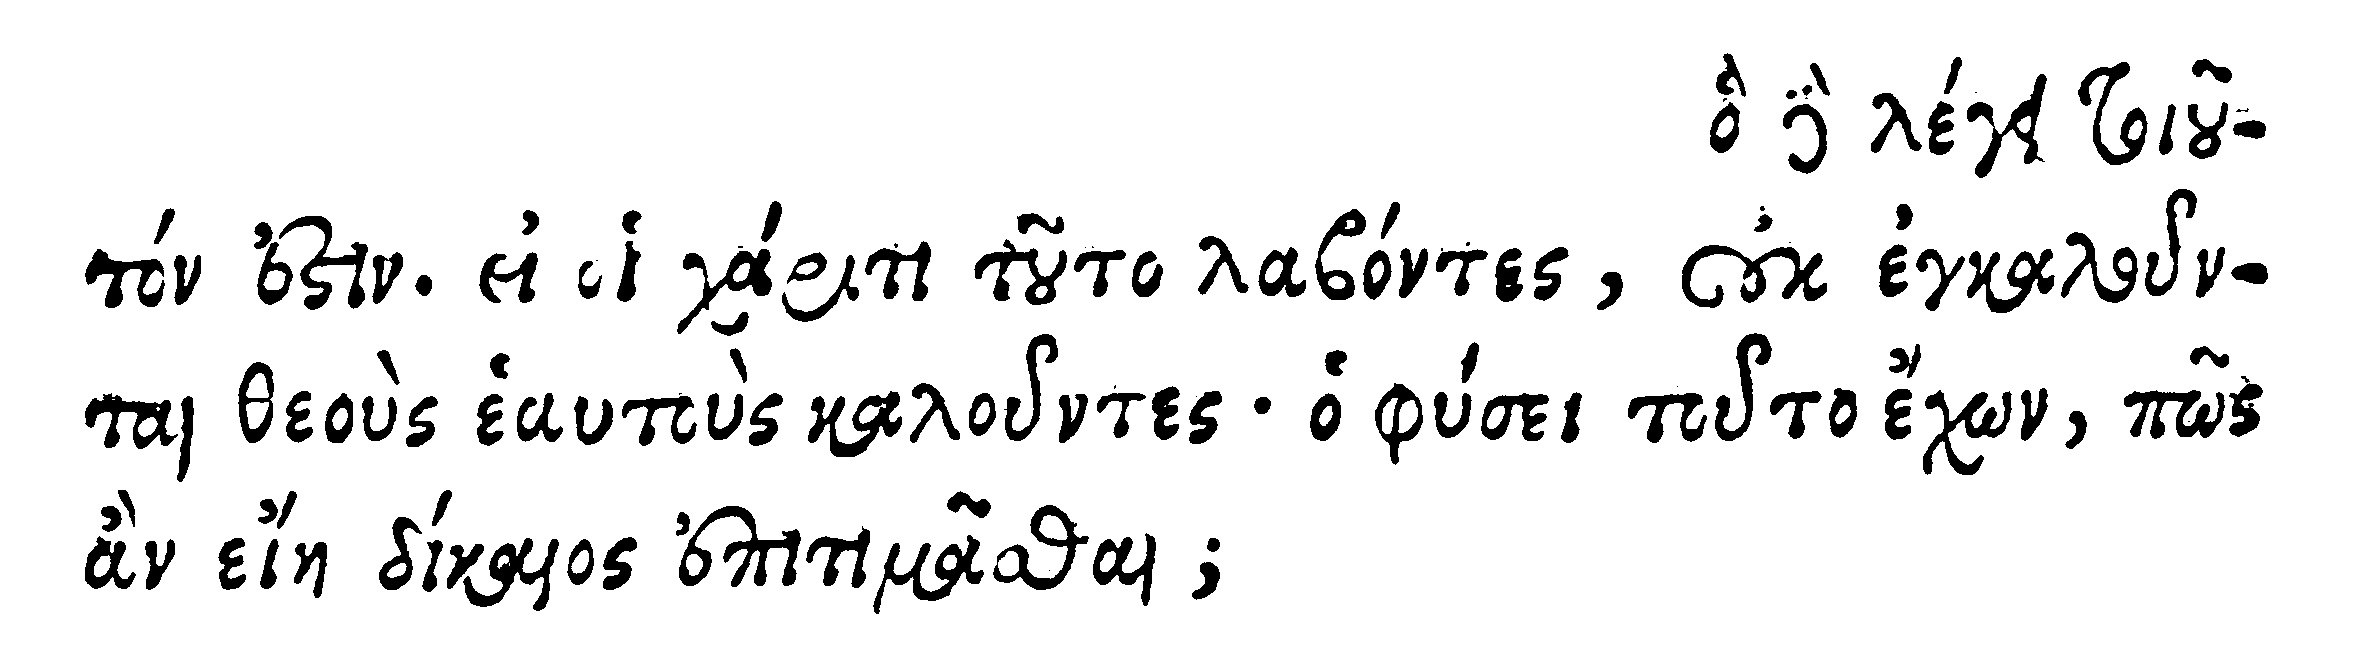 ὃ δὲ λέγει τοιοῦ-
τόν ἐστιν. εἰ οἱ χάριτι τοῦτο λαβόντες, οὐκ ἐγκαλοῦν-
ται θεοὺς ἑαυτοὺς καλοῦντες· ὁ φύσει τοῦτο ἔχων, πῶς
ἂν εἴη δίκαιος ἐπιτιμᾶσθαι;